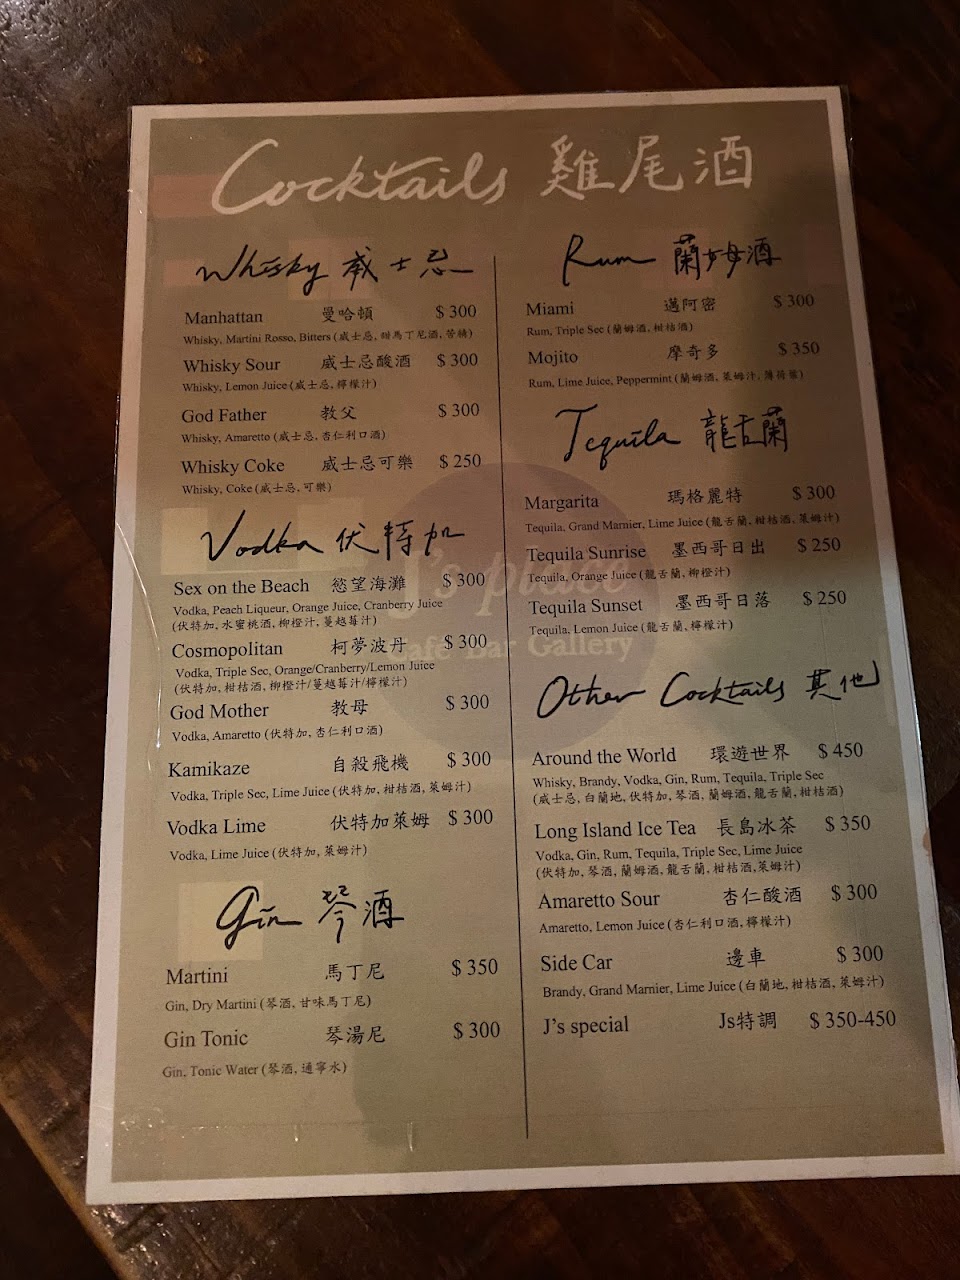 Cocktails 雞尾酒
Whisky 威士忌
Manhattan 曼哈頓 $ 300
Whisky, Martini Rosso, Bitters (威士忌, 甜馬丁尼酒, 苦精)
Whisky Sour 威士忌酸酒 $ 300
Whisky, Lemon Juice (威士忌, 檸檬汁)
God Father 教父 $ 300
Whisky, Amaretto (威士忌, 杏仁利口酒)
Whisky Coke 威士忌可樂 $ 250
Whisky, Coke (威士忌, 可樂)
Vodka 伏特加
Sex on the Beach 慾望海灘 $ 300
Vodka, Peach Liqueur, Orange Juice, Cranberry Juice
(伏特加, 水蜜桃酒, 柳橙汁, 蔓越莓汁)
Cosmopolitan 柯夢波丹 $ 300
Vodka, Triple Sec, Orange/Cranberry/Lemon Juice
(伏特加, 柑桔酒, 柳橙汁/蔓越莓汁/檸檬汁)
God Mother 教母 $ 300
Vodka, Amaretto (伏特加, 杏仁利口酒)
Kamikaze 自殺飛機 $ 300
Vodka, Triple Sec, Lime Juice (伏特加, 柑桔酒, 萊姆汁)
Vodka Lime 伏特加萊姆 $ 300
Vodka, Lime Juice (伏特加, 萊姆汁)
Gin 琴酒
Martini 馬丁尼 $ 350
Gin, Dry Martini (琴酒, 甘味馬丁尼)
Gin Tonic 琴湯尼 $ 300
Gin, Tonic Water (琴酒, 通寧水)
Rum 蘭姆酒
Miami 邁阿密 $ 300
Rum, Triple Sec (蘭姆酒, 柑桔酒)
Mojito 摩奇多 $ 350
Rum, Lime Juice, Peppermint (蘭姆酒, 萊姆汁, 薄荷葉)
Tequila 龍舌蘭
Margarita 瑪格麗特 $ 300
Tequila, Grand Marnier, Lime Juice (龍舌蘭, 柑桔酒, 萊姆汁)
Tequila Sunrise 墨西哥日出 $ 250
Tequila, Orange Juice (龍舌蘭, 柳橙汁)
Tequila Sunset 墨西哥日落 $ 250
Tequila, Lemon Juice (龍舌蘭, 檸檬汁)
Other Cocktails 其他
Around the World 環遊世界 $ 450
Whisky, Brandy, Vodka, Gin, Rum, Tequila, Triple Sec
(威士忌, 白蘭地, 伏特加, 琴酒, 蘭姆酒, 龍舌蘭, 柑桔酒)
Long Island Ice Tea 長島冰茶 $ 350
Vodka, Gin, Rum, Tequila, Triple Sec, Lime Juice
(伏特加, 琴酒, 蘭姆酒, 龍舌蘭, 柑桔酒, 萊姆汁)
Amaretto Sour 杏仁酸酒 $ 300
Amaretto, Lemon Juice (杏仁利口酒, 檸檬汁)
Side Car 邊車 $ 300
Brandy, Grand Marnier, Lime Juice (白蘭地, 柑桔酒, 萊姆汁)
J's special Js特調 $ 350-450
J's place
Cafe Bar Gallery